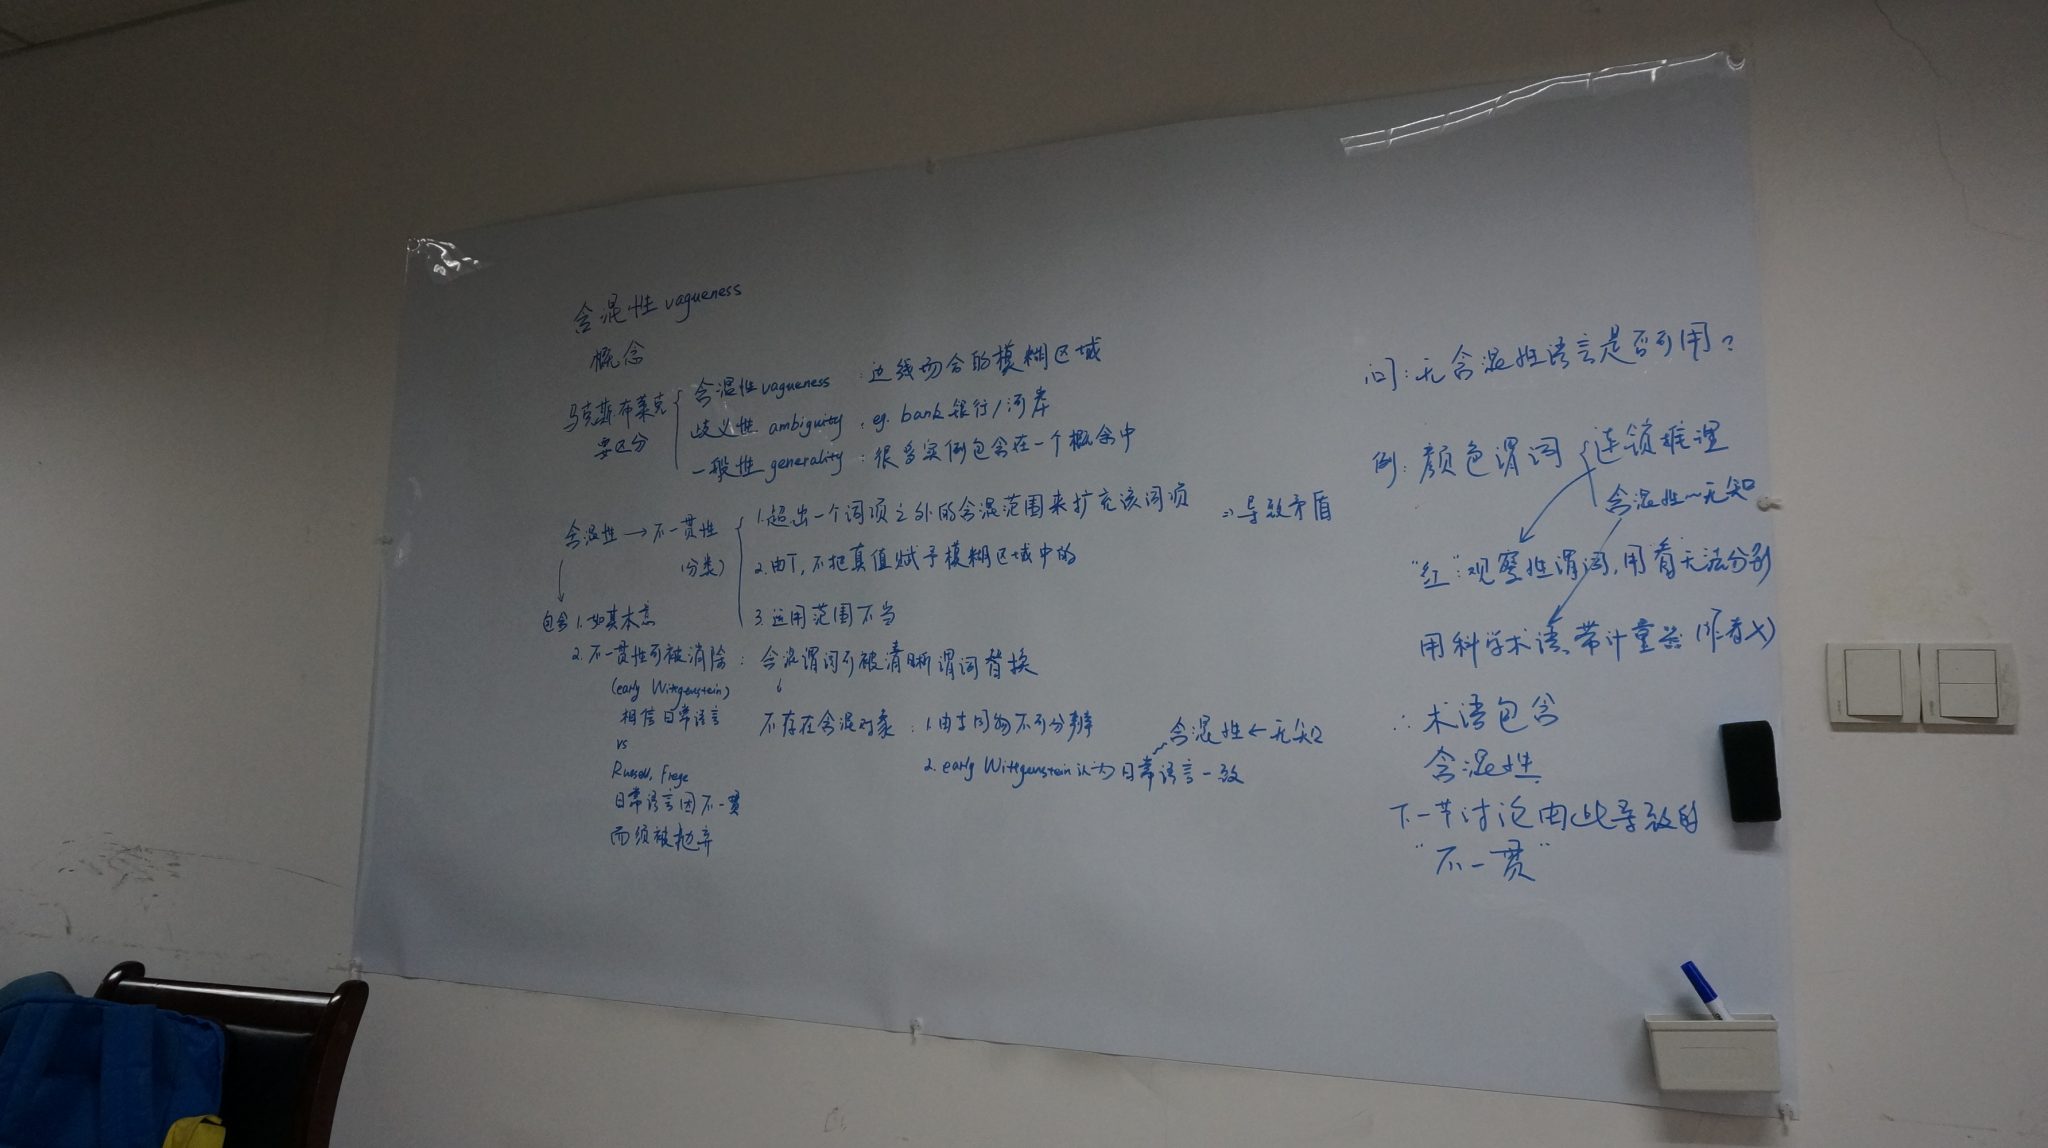 含混性 vagueness
概念
马克斯·布莱克
要区分
含混性 vagueness：边线场合的模糊区域
歧义性 ambiguity，eg. bank 银行/河岸
一般性 generality：很多实例包含在一个概念中
含混性→不一贯性
(分类)
1.超出一个词项之外的含混范围来扩充该词项 => 导致矛盾
2.由T,不把真值赋予模糊区域中的
3.运用范围不当
包含 1.如其本
2.不一贯性可被消除：含混谓词可被清晰谓词替换
(early Wittgenstein)
相信日常语言
vs
Russell, Frege
日常语言因不一贯
而须被抛弃
不存在含混对象：1.由与同物不可分辨
2.early Wittgenstein认为日常语言一致
含混性←无知
问：无含混性语言是否可用？
例：颜色谓词
连锁推理
含混性~无知
"红"：观察性谓词，用看无法分别
用科学术语、带计量器(作者×)
∴术语包含
含混性
下一节讨论由此导致的
"不一贯"